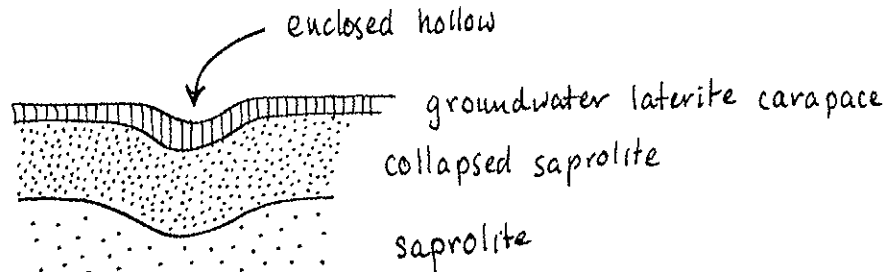 enclosed hollow
groundwater laterite carapace
collapsed saprolite
saprolite